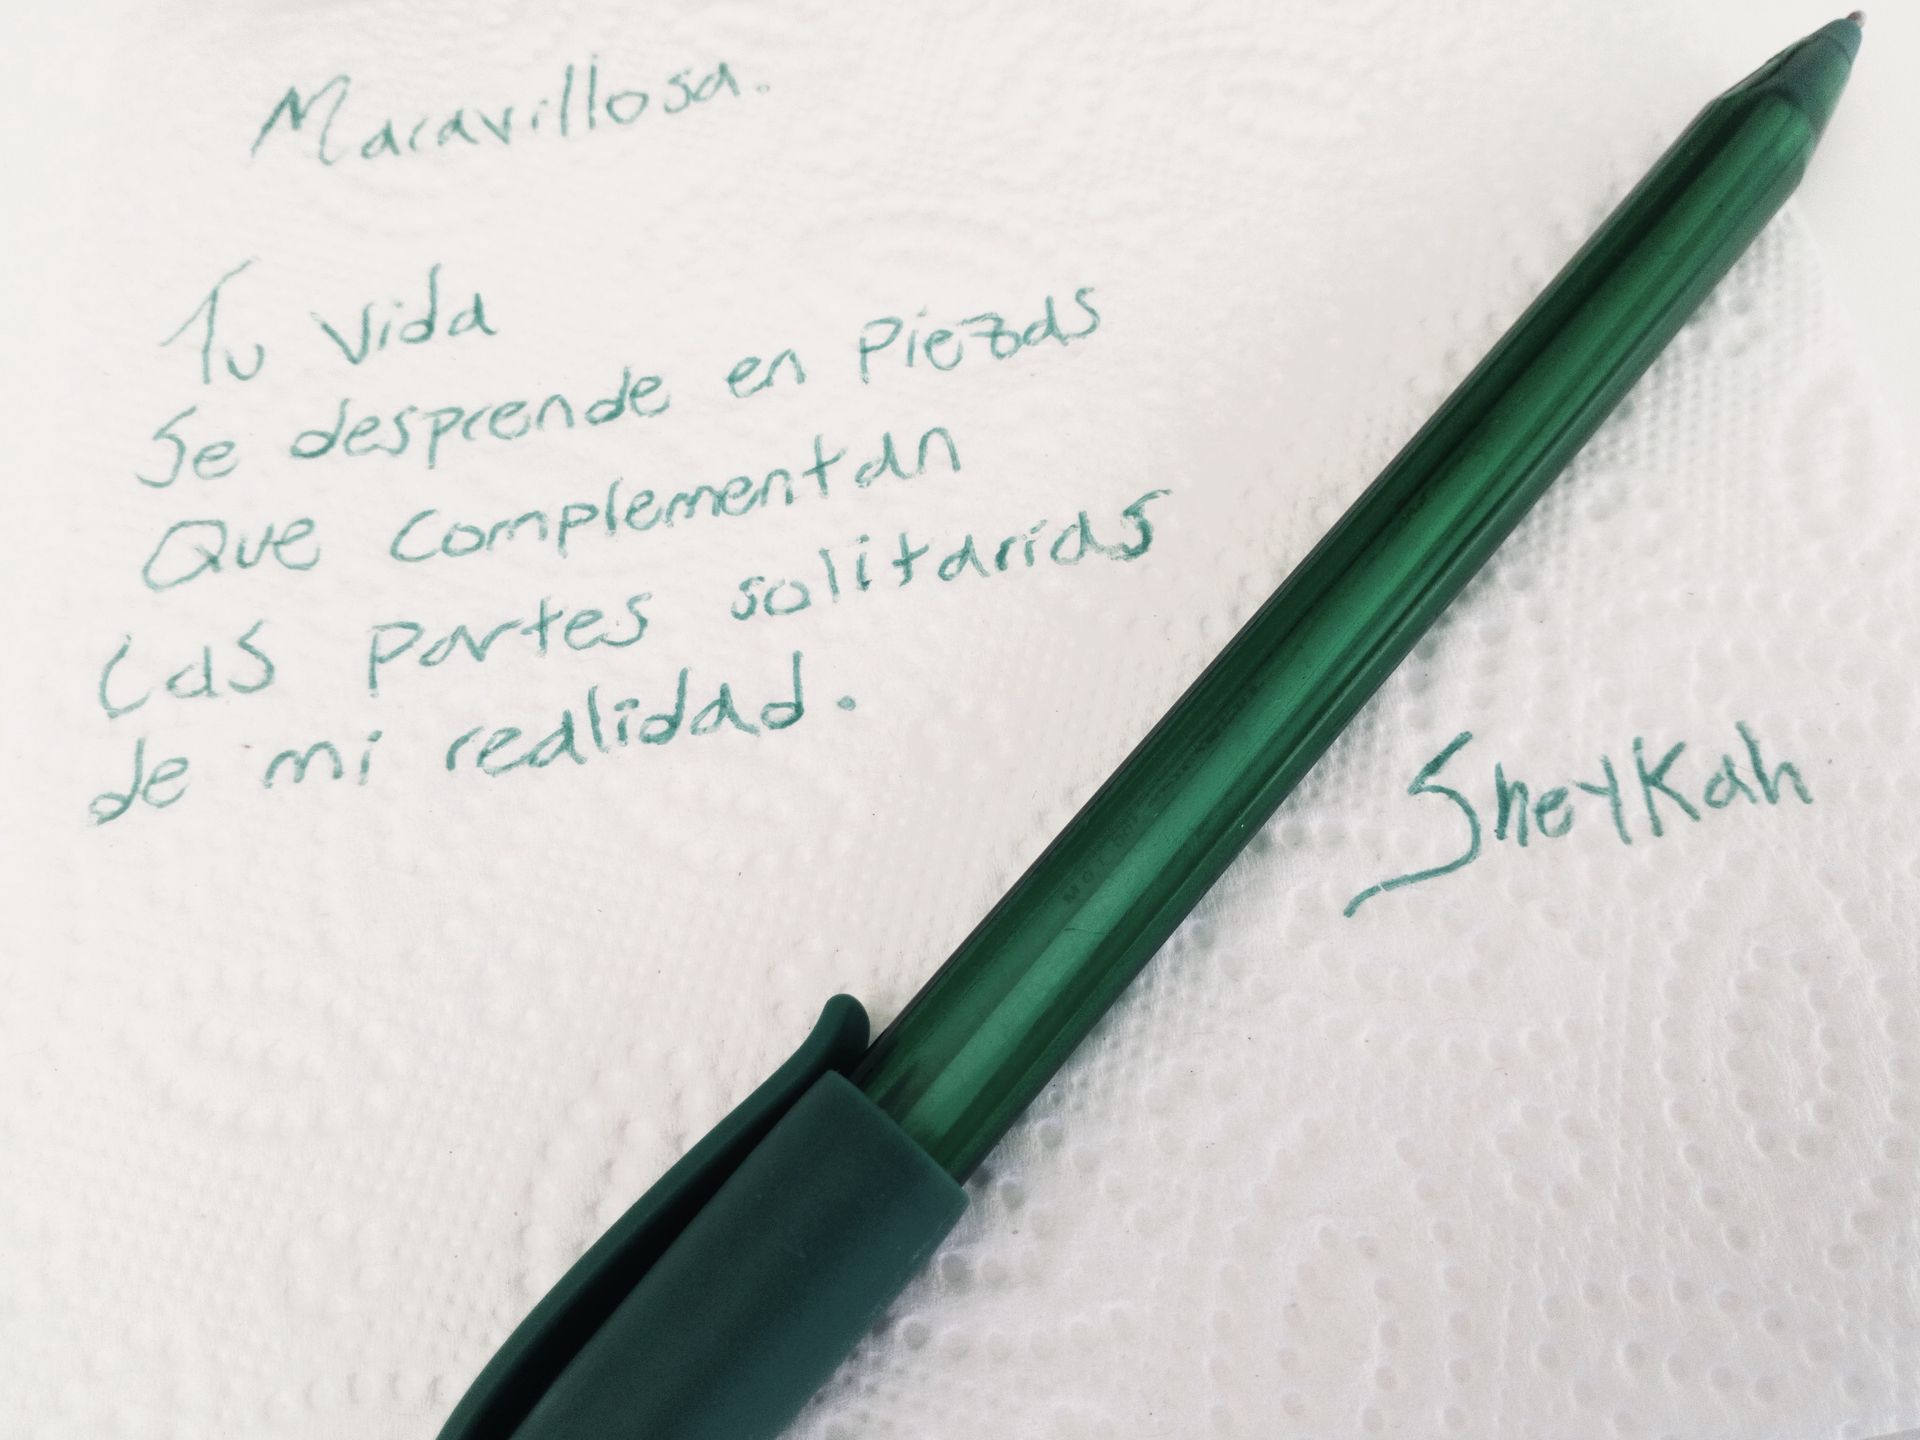 Maravillosa.
Tu vida
Se desprende en piezas
Que complementan
Las partes solitarias
de mi realidad.
SheyKah